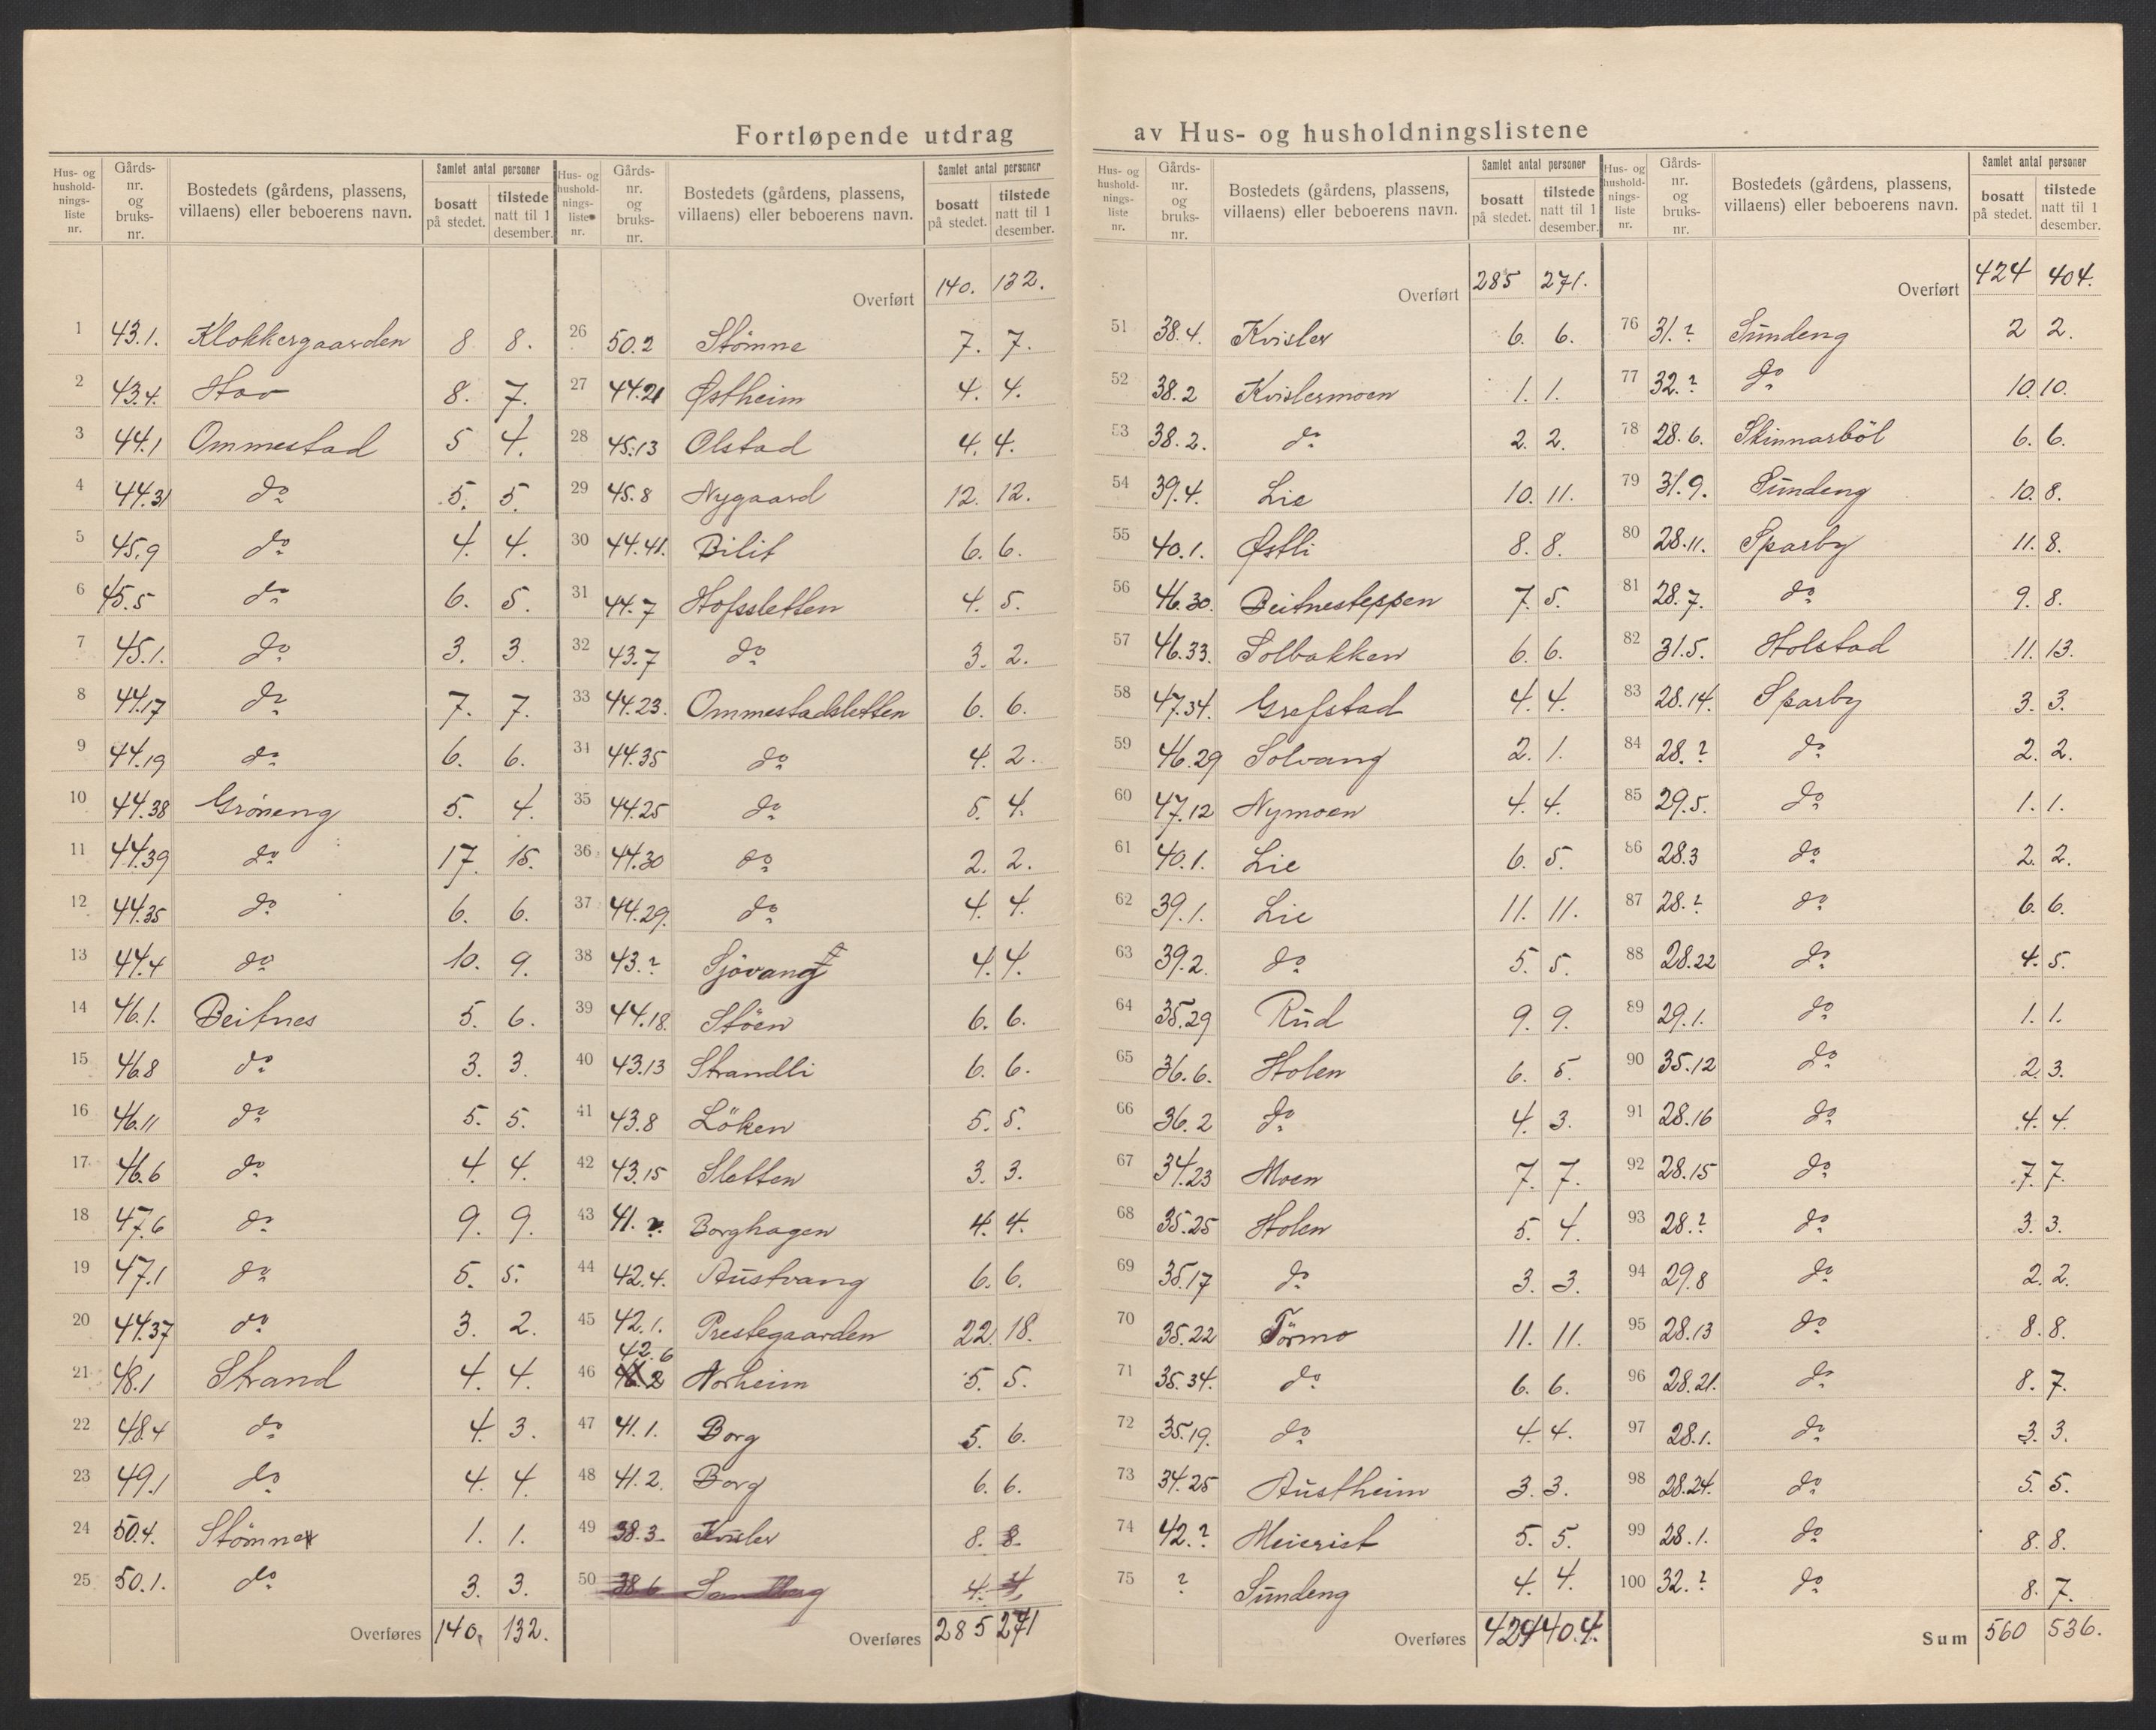 Fortløpende utdrag av Hus- og husholdningslistene
Hus- og husholdningsliste nr. Gårds- nr. og bruks- nr. Bostedets (gårdens, plassens, villaens) eller beboerens navn. Samlet antal personer bosatt på stedet. tilstede natt til 1 desember.
1 43.1. Klokkergaarden 8 8.
2 43.4. Hov 8. 7.
3 44.1 Ommestad 5 4.
4 44.31 do 5. 5.
5 45.9 do 4. 4.
6 45.5 do 6. 5.
7 45.1. do 3. 3.
8 44.17 do 7. 7.
9 44.19 do 6. 6.
10 44.38 Gröneng 5. 4.
11 44.39 do 17. 15.
12 44.35 do 6. 6.
13 44.4 do 10. 9.
14 46.1. Beitnes 5. 6.
15 46.8 do 3. 3.
16 46.11 do 5. 5.
17 46.6 do 4. 4.
18 47.6 do 9. 9.
19 47.1 do 5. 5.
20 44.37 do 3. 2.
21 48.1 Strand 4. 4.
22 48.4 do 4. 3.
23 49.1 do 4. 4.
24 50.4. Stömne 1. 1.
25 50.1. do 3. 3.
Overføres 140. 132.
Hus- og husholdningsliste nr. Gårds- nr. og bruks- nr. Bostedets (gårdens, plassens, villaens) eller beboerens navn. Samlet antal personer bosatt på stedet. tilstede natt til 1 desember.
Overført 140. 132.
26 50.2 Stömne 7. 7.
27 44.21 Østheim 4. 4.
28 45.13 Olstad 4. 4.
29 45.8 Nygaard 12. 12.
30 44.41. Bilit 6. 6.
31 44.7 Hofsletten 4. 5.
32 43.7 do 3. 2.
33 44.23. Ommestadsletten 6. 6.
34 44.35 do 4. 2.
35 44.25 do 5. 4.
36 44.30 do 2. 2.
37 44.29. do 4. 4.
38 43.? Sjövang 4. 4.
39 44.18. Stöen 6. 6.
40 43.13 Strandli 6. 6.
41 43.8 Löken 5. 5.
42 43.15 Sletten 3. 3.
43 41. ?. Borghagen 4. 4.
44 42.4. Austvang 6. 6.
45 42.1. Prestegaarden 22. 18.
46 42.6 Norheim 5. 5.
47 41.1. Borg 5. 6.
48 41.2. Borg 6. 6.
49 38.3 Kvisler 8. 8.
50 38.6 Sandberg 4. 4.
Overføres 285 271
Hus- og husholdningsliste nr. Gårds- nr. og bruks- nr. Bostedets (gårdens, plassens, villaens) eller beboerens navn. Samlet antal personer bosatt på stedet. tilstede natt til 1 desember.
Overført 285 271.
51 38.4. Kvisler 6. 6.
52 38.2 Kvislermoen 1. 1.
53 38.2. do 2. 2.
54 39.4. Lie 10. 11.
55 40.1. Østli 8. 8.
56 46.30. Beitnesteppen 7. 5.
57 46.33. Solbakken 6. 6.
58 47.34. Grefstad 4. 4.
59 46.29 Solvang 2. 1.
60 47.12 Nymoen 4. 4.
61 40.1. Lie 6. 5.
62 39.1. Lie 11. 11.
63 39.2. do 5. 5.
64 35.29 Rud 9. 9.
65 36.6. Holen 6. 5.
66 36.2 do 4. 3.
67 34.23 Moen 7. 7.
68 35.25 Holen 5. 4.
69 35.17 do 3. 3.
70 35.22 Törmo 11. 11.
71 35.34. do 6. 6.
72 35.19. do 4. 4.
73 34.25 Austheim 3. 3.
74 42.? Meierist 5. 5.
75 ? Sundeng 4. 4.
Overføres 424 404.
Hus- og husholdningsliste nr. Gårds- nr. og bruks- nr. Bostedets (gårdens, plassens, villaens) eller beboerens navn. Samlet antal personer bosatt på stedet. tilstede natt til 1 desember.
Overført 424 404.
76 31.? Sundeng 2 2.
77 32.? do 10. 10.
78 28.6. Skinnarböl 6. 6.
79 31.9. Sundeng 10. 8.
80 28.11. Sparby 11. 8.
81 28.7. do 9. 8.
82 31.5. Holstad 11. 13.
83 28.14. Sparby 3. 3.
84 28.? do 2. 2.
85 29.5. do 1. 1.
86 28.3 do 2. 2.
87 28.? do 6. 6.
88 28.22 do 4. 5.
89 29.1. do 1. 1.
90 35.12 do 2. 3.
91 28.16 do 4. 4.
92 28.15 do 7. 7.
93 28.? do 3. 3.
94 29.8 do 2. 2.
95 28.13 do 8. 8.
96 28.21. do 8. 7.
97 28.1. do 3. 3.
98 28.24. do 5. 5.
99 28.1. do 8. 8.
100 32.? do 8. 7.
Sum 560 536.